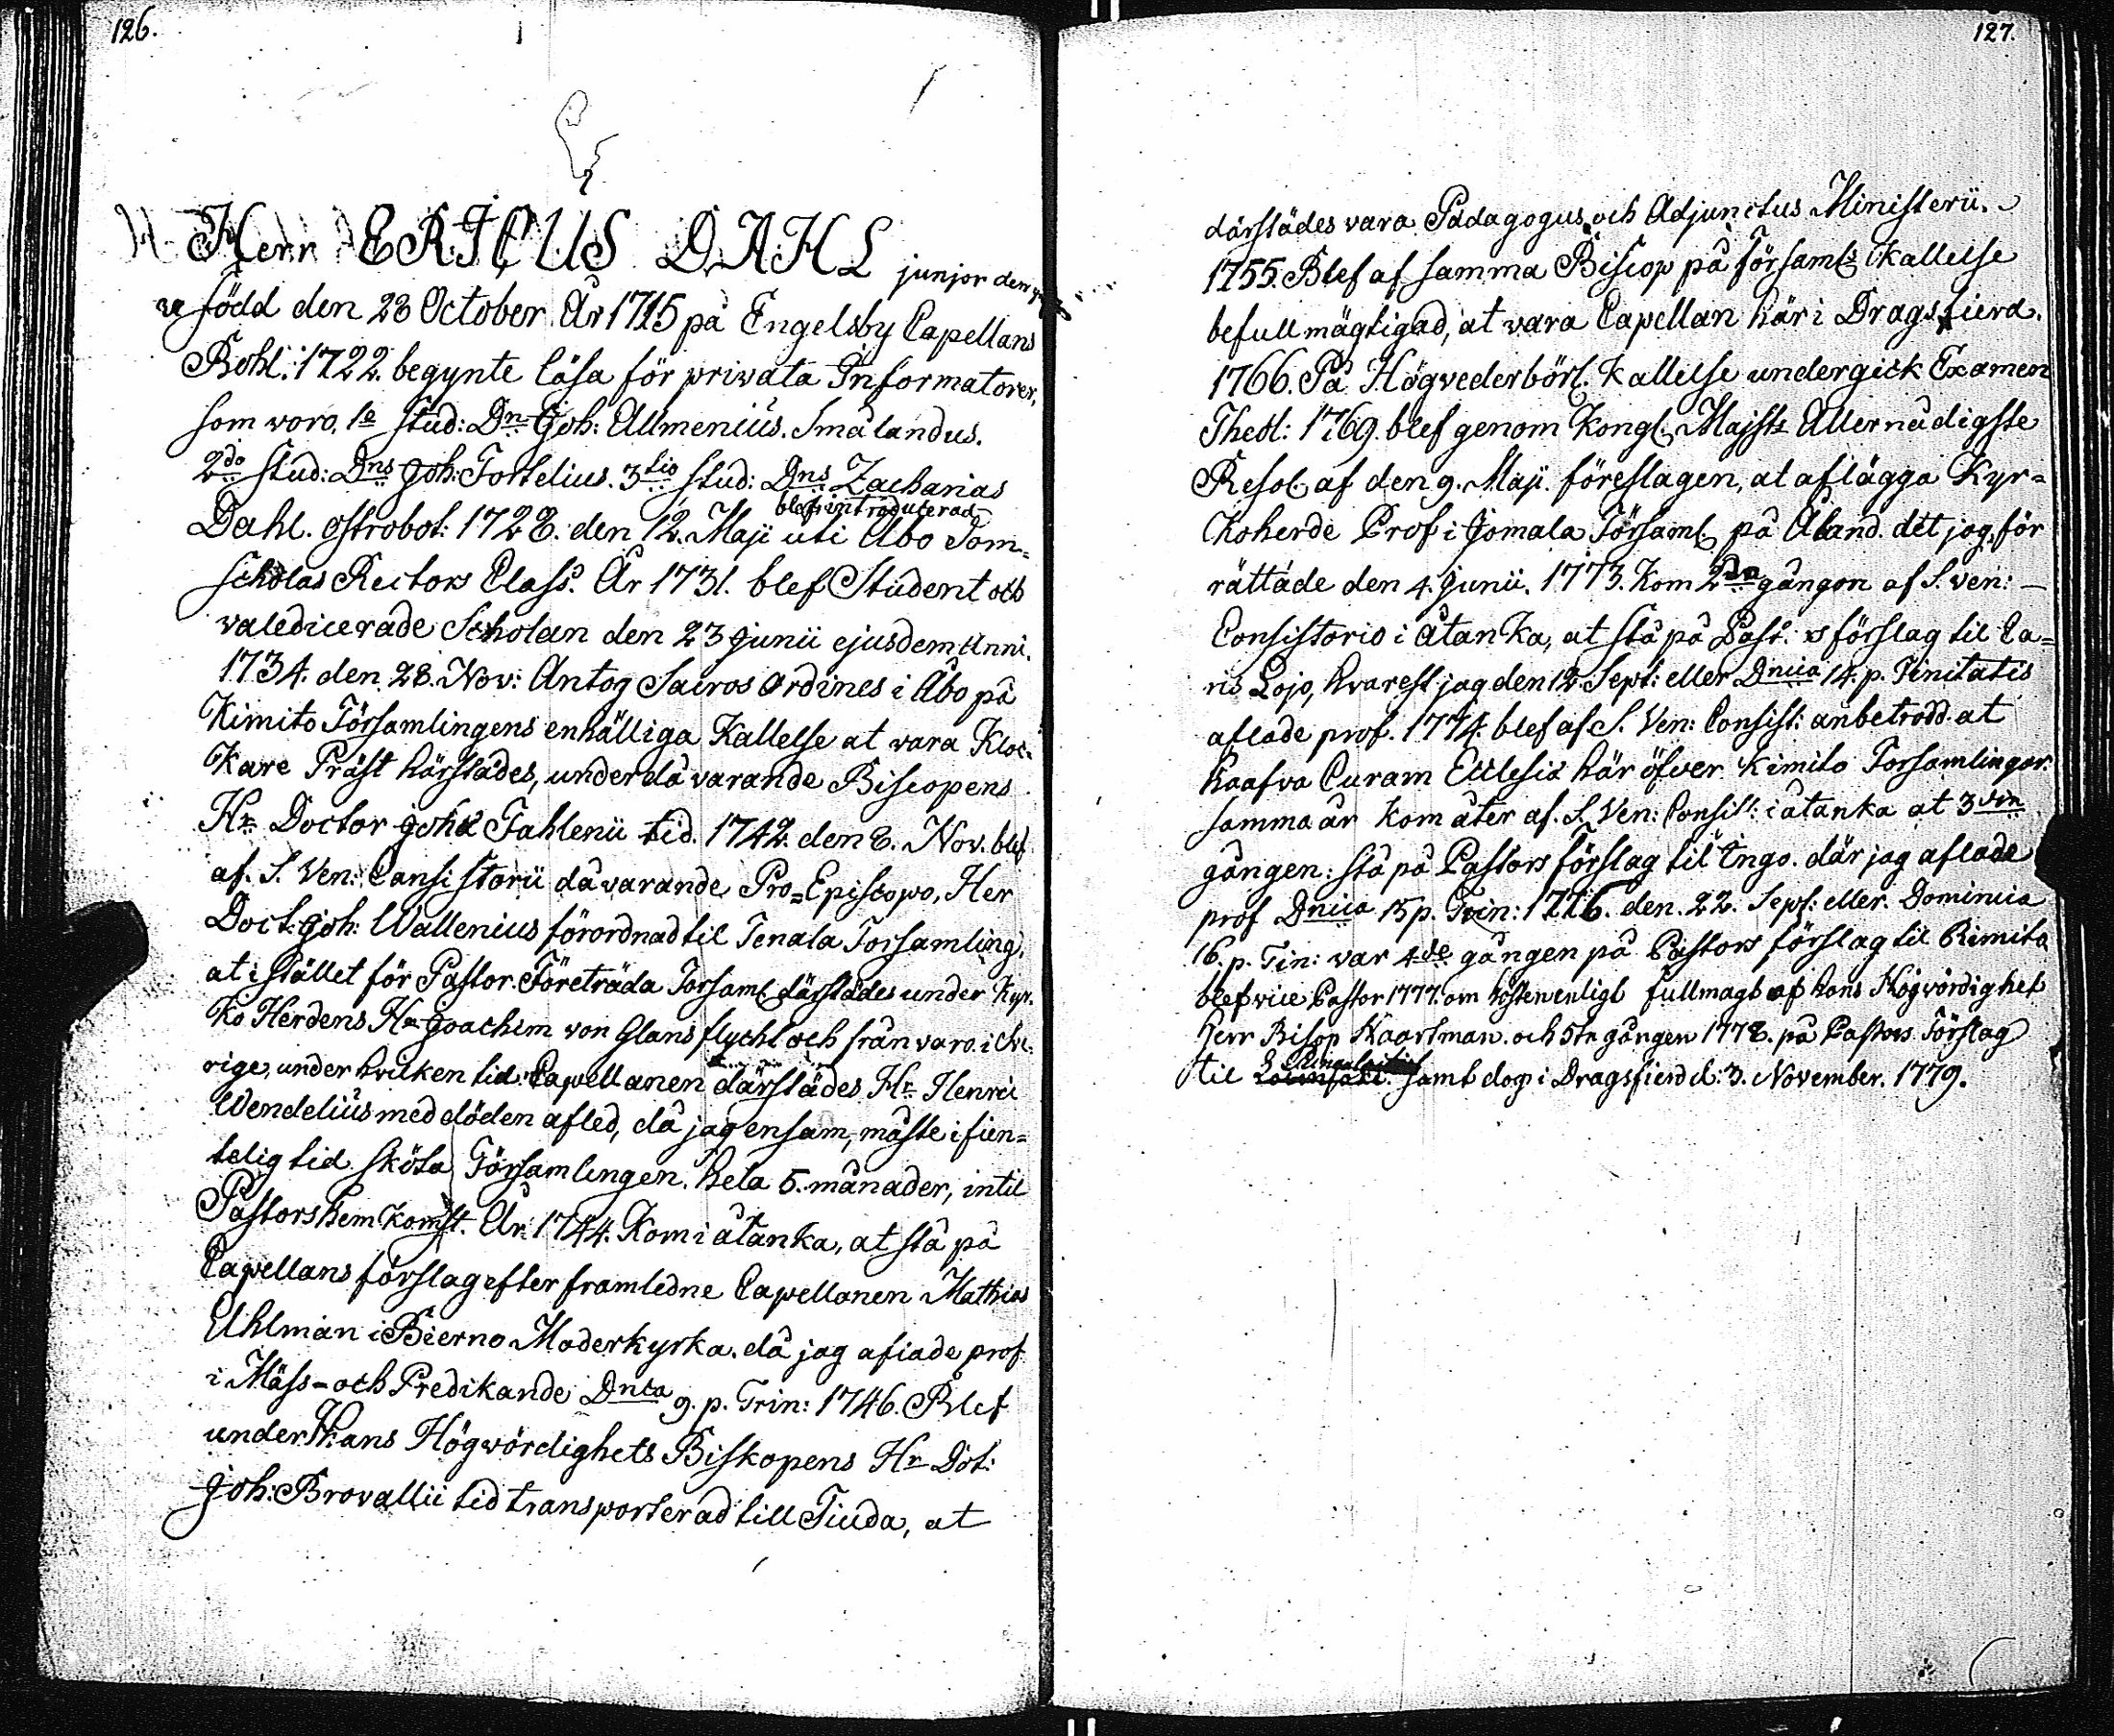 126.
Herr ERICUS DAHL junior den
född den 28 October År 1715 på Engelsby Capellans
Bohl: 1722. begynte läsa för privata Informatorer,
som voro, 1o Stud: Dn Joh: Allmenius. Smålandus.
2do Stud: Dns Joh: Fortelius. 3tio Stud: Dns Zacharias
blef introducerad
Dahl. Ostrobot: 1728. den 12. Maji uti Åbo Dom=
scholas Rectors Class. År 1731. blef Student och
valedicerade Scholan den 23 Junii ejusdem Anni.
1734. den 28. Nov: Antog Sacros Ordines i Åbo på
Kimito Församlingens enhälliga Kallelse at vara Kloc=
kare Präst härstädes, under då varande Biscopens
Hr Doctor Joh: Fahlenii tid. 1742. den 8. Nov. blef
af. S. Ven: Consistorii då varande Pro=Episcopo, Her
Doct: Joh: Wallenius förordnad til Tenala Forsamling,
at i stället för Pastor Företräda Forsaml. därstädes under Kyr.
ko Herdens Hr Joachim von Glans flycht och från varo i Sve.
rige, under hvilken tid Capellanen därstädes Hr Henric
Wendelius med döden afled, då jag ensam, måste i fien=
telig tid sköta Församlingen, hela 5. månader, intil
Pastors hemkomst. År 1744. Kom i åtanka, at stå på
Capellans förslag efter framledne Capellanen Mathias
Uhlman i Bierno Moderkyrka. då jag aflade prof
i Mäss- och Predikande Dnca 9. p. Trin: 1746. Blef
under Hans Högwördighets Biskopens Hr Dot:
Joh: Brovallii tid transporterad till Tiuda, at
127.
därstädes vara Pædagogus och Adjunctus Ministerii.
1755. Blef af samma Biscop på församl:s Kallelse
befullmägtigad, at vara Capellan här i Dragsfierd.
1766. På Högvederbörl. Kallelse undergick Examen
Theol: 1769. blef genom Kongl. Majsts Allernådigste
Resol. af den 9. Maji föreslagen, at aflägga Kyr=
koherde Prof i Jomala Församl. på Åland. det jag för
rättade den 4. Junii. 1773. Kom 2dra gången af S. Ven:
Consistorio i åtanka, at stå på Past:s förslag til Ca=
ris Lojo, hvarest jag den 12 Sept: eller Dnica 14. p. Trinitatis
aflade prof. 1774. blef af S. Ven: Consist: anbetrodd at
haafva Curam Ecclesiæ här öfver Kimito Forsamlingar.
samma år kom åter af. S. Ven: Consist: i åtanka at 3die
gången stå på Pastors förslag til Ingo. där jag aflade
prof Dnica 15 p. Trin: 1776. den. 22. Sept: eller Dominica
16. p. Trin: var 4de gången på Pastors förslag til Kimito
blef vice Pastor 1777. om hösten enligt fullmagt af hans Högwördighet
Herr Biscop Haartman. och 5te gången 1778. på Pastors Förslag
til samt dog i Dragsfierd d: 3. November. 1779.